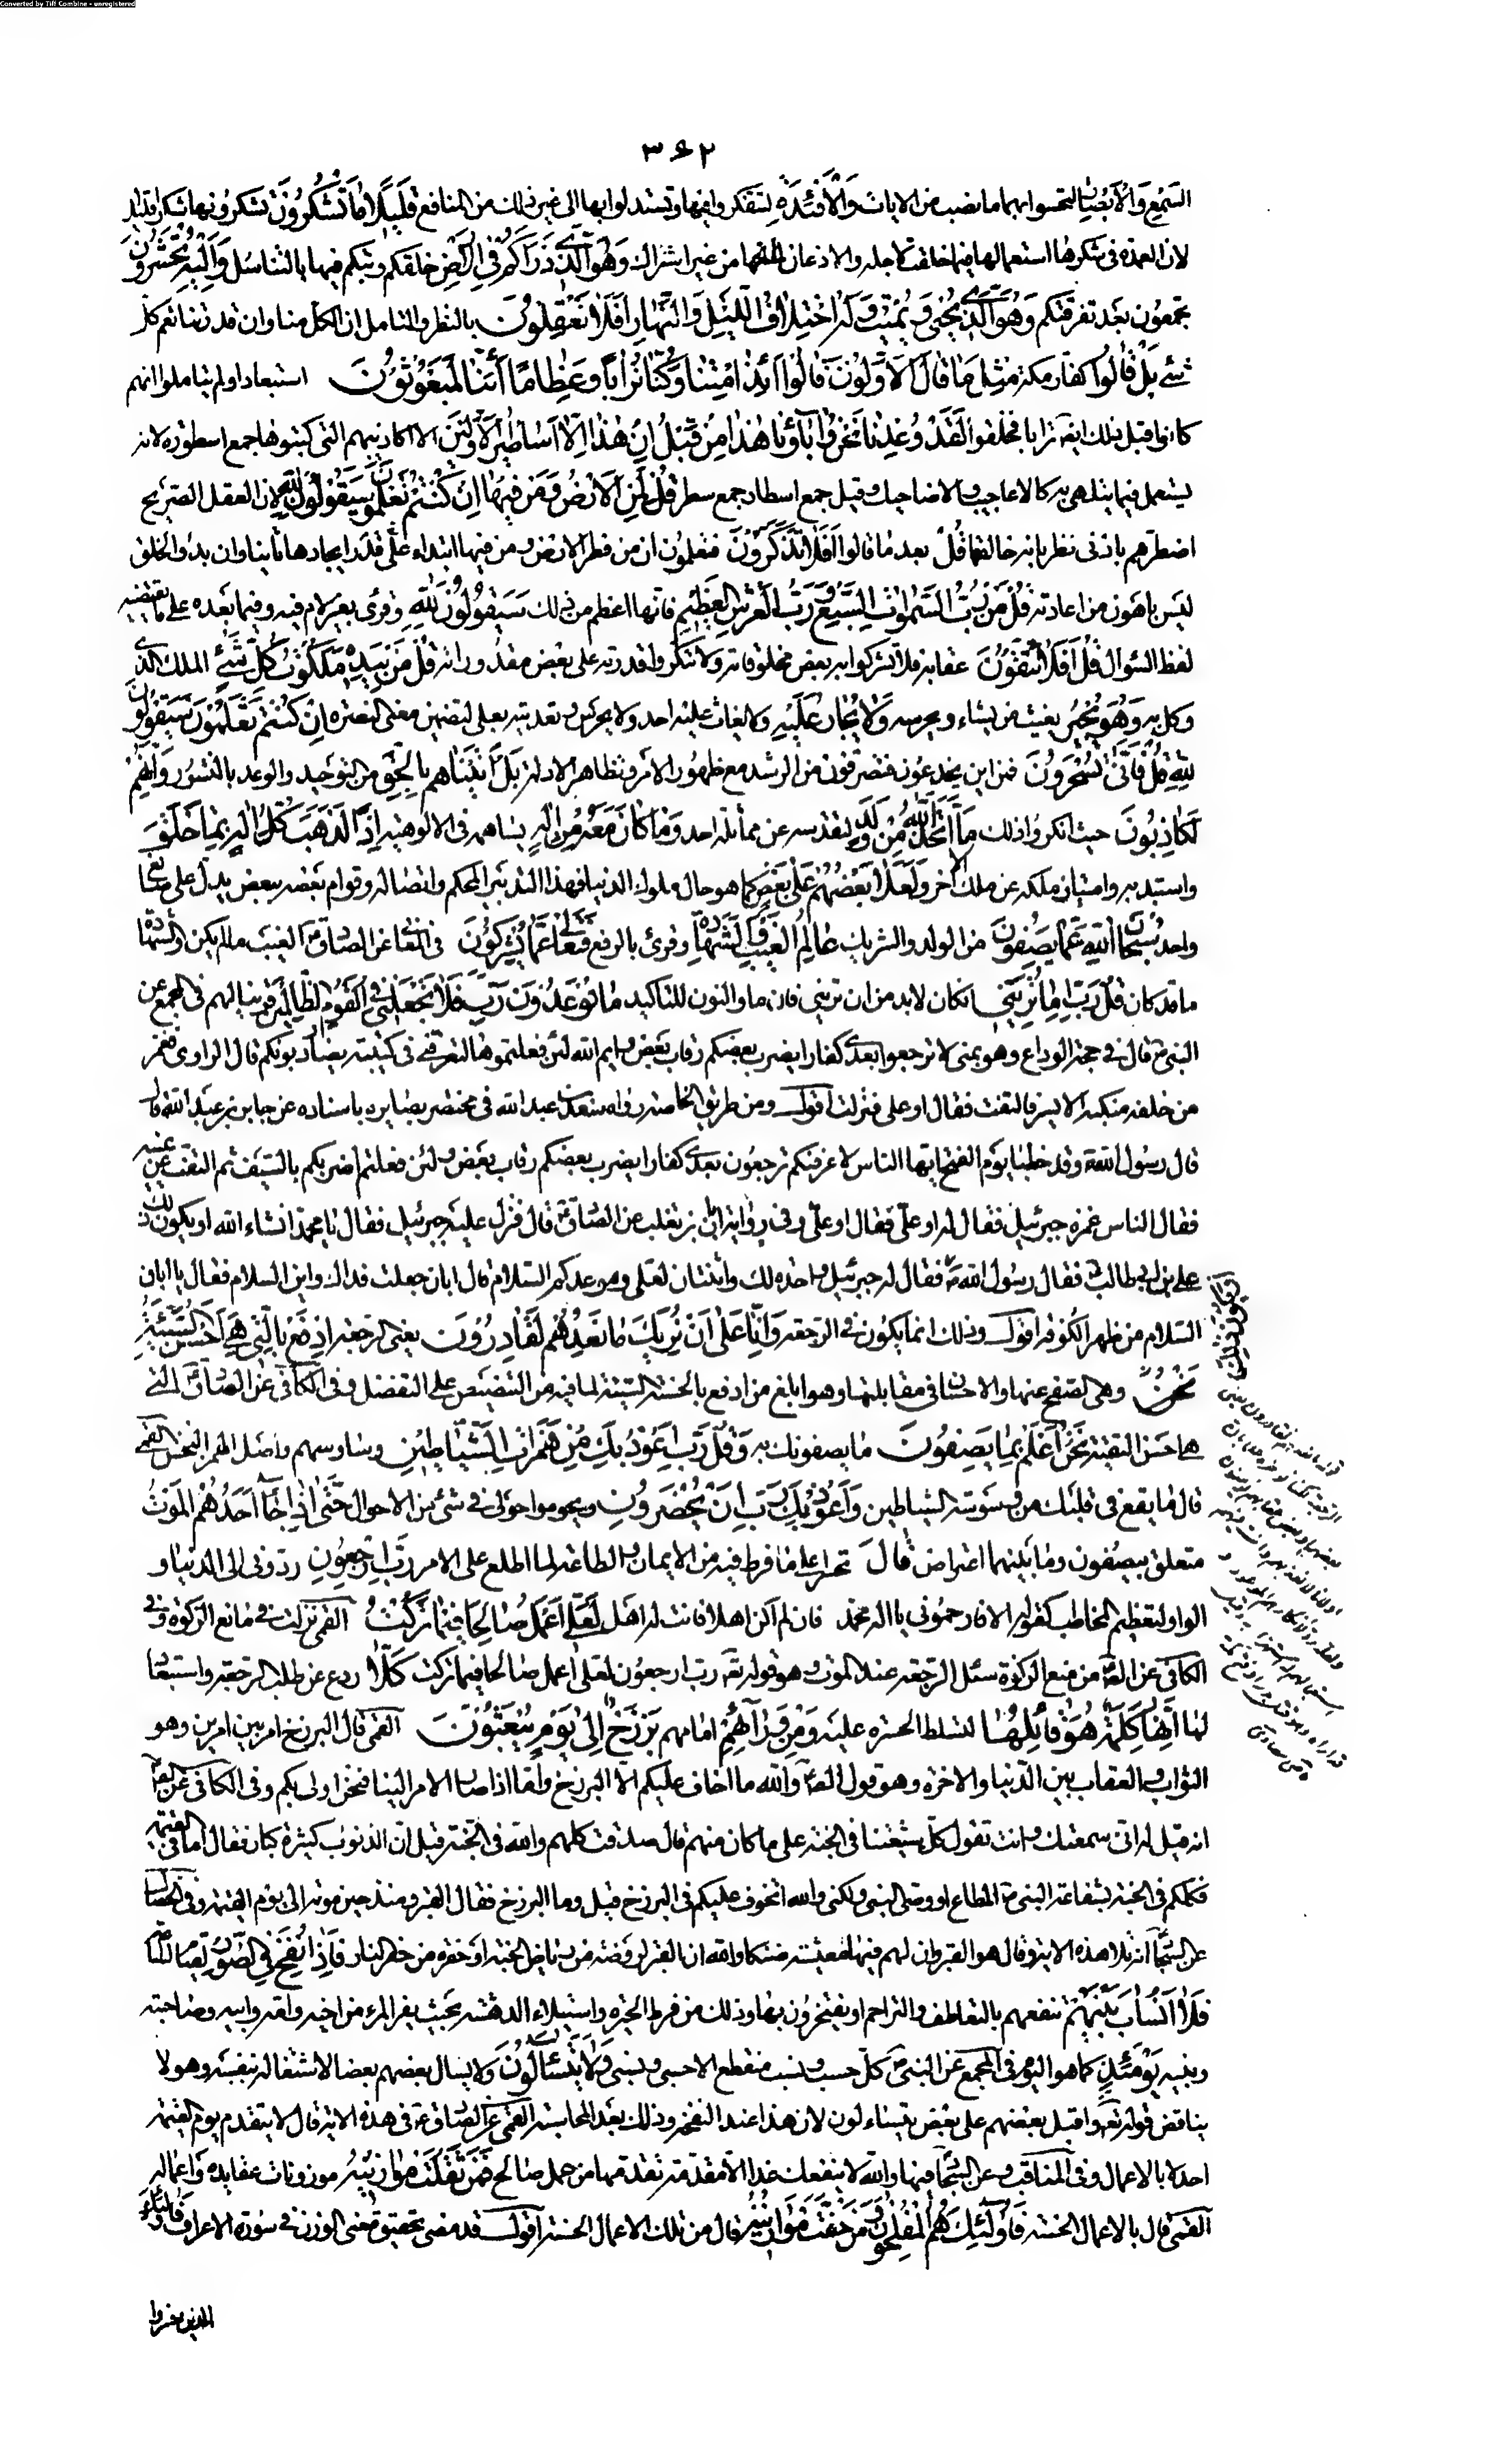 Converted by Tiff Combine - unregistered
٣٤٢
السَّمْعَ وَالْأَبْصَارَ لتحسوا بهما ما نصب من الايات وَالْأَفْئِدَةَ لتتفكروا فيها وتستدلوا بها الى غير ذلك من المنافع قَلِيلًا مَا تَشْكُرُونَ تشكرونها شكرا قليلا
لان العمدة فى شكرها استعمالها فيما خلقت لاجله والاذعان لمانحها من غير اشراك وَهُوَ الَّذِي ذَرَأَكُمْ فِي الْأَرْضِ خلقكم وبثكم فيها بالتناسل وَإِلَيْهِ تُحْشَرُونَ
تجمعون بعد تفرقتكم وَهُوَ الَّذِي يُحْيِي وَيُمِيتُ وَلَهُ اخْتِلَافُ اللَّيْلِ وَالنَّهَارِ أَفَلَا تَعْقِلُونَ بالنظر والتامل ان الكل منا وان قدرتنا تعم كل
شئ بَلْ قَالُوا كفار مكة مِثْلَ مَا قَالَ الْأَوَّلُونَ قَالُوا أَئِذَا مِتْنَا وَكُنَّا تُرَابًا وَعِظَامًا أَئِنَّا لَمَبْعُوثُونَ استبعادا ولم يتاملوا انهم
كانوا قبل ذلك ايضا ترابا فخلقوا لَقَدْ وُعِدْنَا نَحْنُ وَآبَاؤُنَا هَذَا مِنْ قَبْلُ إِنْ هَذَا إِلَّا أَسَاطِيرُ الْأَوَّلِينَ الا اكاذيبهم التى كتبوها جمع اسطورة لانه
يستعمل فيما يتلهى به كالاعاجيب والاضاحيك وقيل جمع اسطار جمع سطر قُلْ لِمَنِ الْأَرْضُ وَمَنْ فِيهَا إِنْ كُنْتُمْ تَعْلَمُونَ سَيَقُولُونَ لِلَّهِ لان العقل الصريح
اضطرهم بادنى نظر بانه خالقها قُلْ بعد ما قالوا أَفَلَا تَذَكَّرُونَ فتعلمون ان من فطر الارض ومن فيها ابتداء على قدر ايجادها ثانيا وان بدؤ الخلق
ليس باهون من اعادته قُلْ مَنْ رَبُّ السَّمَوَاتِ السَّبْعِ وَرَبُّ الْعَرْشِ الْعَظِيمِ فانها اعظم من ذلك سَيَقُولُونَ لِلَّهِ وقرئ بغير لام فيه وفيما بعده على ما يقتضيه
لفظ السؤال قُلْ أَفَلَا تَتَّقُونَ عقابه فلا تشركوا به بعض مخلوقاته ولا تنكروا قدرته على بعض مقدوراته قُلْ مَنْ بِيَدِهِ مَلَكُوتُ كُلِّ شَيْءٍ الملك الذى
وكل به وَهُوَ يُجِيرُ يغيث من يشاء ويحرسه وَلَا يُجَارُ عَلَيْهِ ولا يغاث عليه احد ولا يحرس وتعديته بعلى لتضمن معنى النصرة إِنْ كُنْتُمْ تَعْلَمُونَ سَيَقُولُونَ
لِلَّهِ قُلْ فَأَنَّى تُسْحَرُونَ فمن اين تخدعون فتصرفون من الرشد مع ظهور الامر وتظاهر الادلة بَلْ أَتَيْنَاهُمْ بِالْحَقِّ من التوحيد والوعد بالنشور وَإِنَّهُمْ
لَكَاذِبُونَ حيث انكروا ذلك مَا اتَّخَذَ اللَّهُ مِنْ وَلَدٍ لتقدسه عن مماثلة احد وَمَا كَانَ مَعَهُ مِنْ إِلَهٍ يساهمه فى الالوهية إِذًا لَذَهَبَ كُلُّ إِلَهٍ بِمَا خَلَقَ
واستبد به وامتياز ملكه عن ملك الاخر وَلَعَلَا بَعْضُهُمْ عَلَى بَعْضٍ كما هو حال ملوك الدنيا فهذا التدبير المحكم واتصاله وقوام بعضه ببعض يدل على صانع
واحد سُبْحَانَ اللَّهِ عَمَّا يَصِفُونَ من الولد والشريك عَالِمِ الْغَيْبِ وَالشَّهَادَةِ وقرئ بالرفع فَتَعَالَى عَمَّا يُشْرِكُونَ فى المعانى عن الصادق الغيب ما لم يكن والشهادة
ما قد كان قُلْ رَبِّ إِمَّا تُرِيَنِّي ان كان لابد من ان تريني فان ما والنون للتاكيد مَا يُوعَدُونَ رَبِّ فَلَا تَجْعَلْنِي فِي الْقَوْمِ الظَّالِمِينَ قرينا لهم فى المجمع عن
النبى قال فى حجة الوداع وهو بمنى لا ترجعوا بعدى كفارا يضرب بعضكم رقاب بعض وايم الله لئن فعلتموها لتعرفني فى كتيبة يضاربونكم قال الراوى فغمز
من خلفه منكبه الايسر فالتفت فقال او على فنزلت اقول ومن طريق الخاصة رواه سعد بن عبد الله فى مختصر بصايره باسناده عن جابر بن عبد الله قال
قال رسول الله وقد خطبنا يوم الفتح ايها الناس لاعرفنكم ترجعون بعدى كفارا يضرب بعضكم رقاب بعض ولئن فعلتم لاضربنكم بالسيف ثم التفت عن يمينه
فقال الناس غمزه جبرئيل فقال له او علىّ فقال او علىّ وفى رواية ابان بن تغلب عن الصادق قال فنزل عليه جبرئيل فقال يا محمد انشاء الله او يكون ذلك
على بن ابى طالب فقال رسول الله فقال له جبرئيل واحدة لك واثنتان لعلى وموعدكم السلام قال ابان جعلت فداك واين السلام فقال يا ابان
السلام من ظهر الكوفة اقول وذلك انما يكون فى الرجعة وَإِنَّا عَلَى أَنْ نُرِيَكَ مَا نَعِدُهُمْ لَقَادِرُونَ يعنى الرجعة ادْفَعْ بِالَّتِي هِيَ أَحْسَنُ السَّيِّئَةَ
نَحْنُ وهى الصفح عنها والاحسان فى مقابلتها وهو ابلغ من ادفع بالحسنة السيئة لما فيه من التنصيص على التفضل وفى الكافى عن الصادق التى
هى احسن التقية نَحْنُ أَعْلَمُ بِمَا يَصِفُونَ ما يصفونك به وَقُلْ رَبِّ أَعُوذُ بِكَ مِنْ هَمَزَاتِ الشَّيَاطِينِ وساوسهم واصل الهمز النخس القمى
قال ما يقع فى قلبك من وسوسة الشياطين وَأَعُوذُ بِكَ رَبِّ أَنْ يَحْضُرُونِ ويحوموا حولى فى شئ من الاحوال حَتَّى إِذَا جَاءَ أَحَدَهُمُ الْمَوْتُ
متعلق بيصفون وما بينهما اعتراض قَالَ تحسرا على ما فرط فيه من الايمان والطاعة لما اطلع على الامر رَبِّ ارْجِعُونِ ردونى الى الدنيا و
الواو لتعظيم المخاطب كقوله الا فارحمونى يا اله محمد فان لم اكن اهلا فانت له اهل لَعَلِّي أَعْمَلُ صَالِحًا فِيمَا تَرَكْتُ القمى نزلت فى مانع الزكوة وفى
الكافى عن الصادق من منع الزكوة سئل الرجعة عند الموت وهو قوله تعالى رب ارجعون لعلى اعمل صالحا فيما تركت كَلَّا ردع عن طلب الرجعة واستبعاد
لها إِنَّهَا كَلِمَةٌ هُوَ قَائِلُهَا لتسلط الحسرة عليه وَمِنْ وَرَائِهِمْ امامهم بَرْزَخٌ إِلَى يَوْمِ يُبْعَثُونَ القمى قال البرزخ امر بين امرين وهو
الثواب والعقاب بين الدنيا والاخرة وهو قول الصادق والله ما اخاف عليكم الا البرزخ واما اذا صار الامر الينا فنحن اولى بكم وفى الكافى عن الصادق
انه قيل له انى سمعتك وانت تقول كل شيعتنا فى الجنة على ما كان منهم قال صدقتك كلهم والله فى الجنة قيل ان الذنوب كثيرة كبار فقال اما فى القيمة
فكلكم فى الجنة بشفاعة النبى المطاع او وصى النبى ولكنى والله اتخوف عليكم فى البرزخ قيل وما البرزخ فقال القبر منذ حين موته الى يوم القيمة وفى الخصال
عن السجاد انه تلا هذه الاية وقال هو القبر وان لهم فيها لمعيشة ضنكا والله ان القبر لروضة من رياض الجنة او حفرة من حفر النار فَإِذَا نُفِخَ فِي الصُّورِ لقيام الساعة
فَلَا أَنْسَابَ بَيْنَهُمْ تنفعهم بالتعاطف والتراحم او يفتخرون بها وذلك من فرط الحيرة واستيلاء الدهشة بحيث يفر المرء من اخيه وامه وابيه وصاحبته
وبنيه يَوْمَئِذٍ كما هو اليوم فى المجمع عن النبى كل حسب ونسب منقطع الا حسبى ونسبى وَلَا يَتَسَاءَلُونَ ولا يسال بعضهم بعضا لاشتغاله بنفسه وهو لا
يناقض قوله تعالى واقبل بعضهم على بعض يتساءلون لان هذا عند النفخة وذلك بعد المحاسبة القمى عن الصادق فى هذه الاية قال لا يتقدم يوم القيمة
احد الا بالاعمال وفى المناقب عن السجاد فيها والله لا ينفعك غدا الا تقدمة تقدمها من عمل صالح فَمَنْ ثَقُلَتْ مَوَازِينُهُ موزونات عقايده واعماله
القمى قال بالاعمال الحسنة فَأُولَئِكَ هُمُ الْمُفْلِحُونَ وَمَنْ خَفَّتْ مَوَازِينُهُ قال من تلك الاعمال الحسنة اقول قد مضى تحقيق معنى الوزن فى سورة الاعراف فَأُولَئِكَ
الذين خسروا